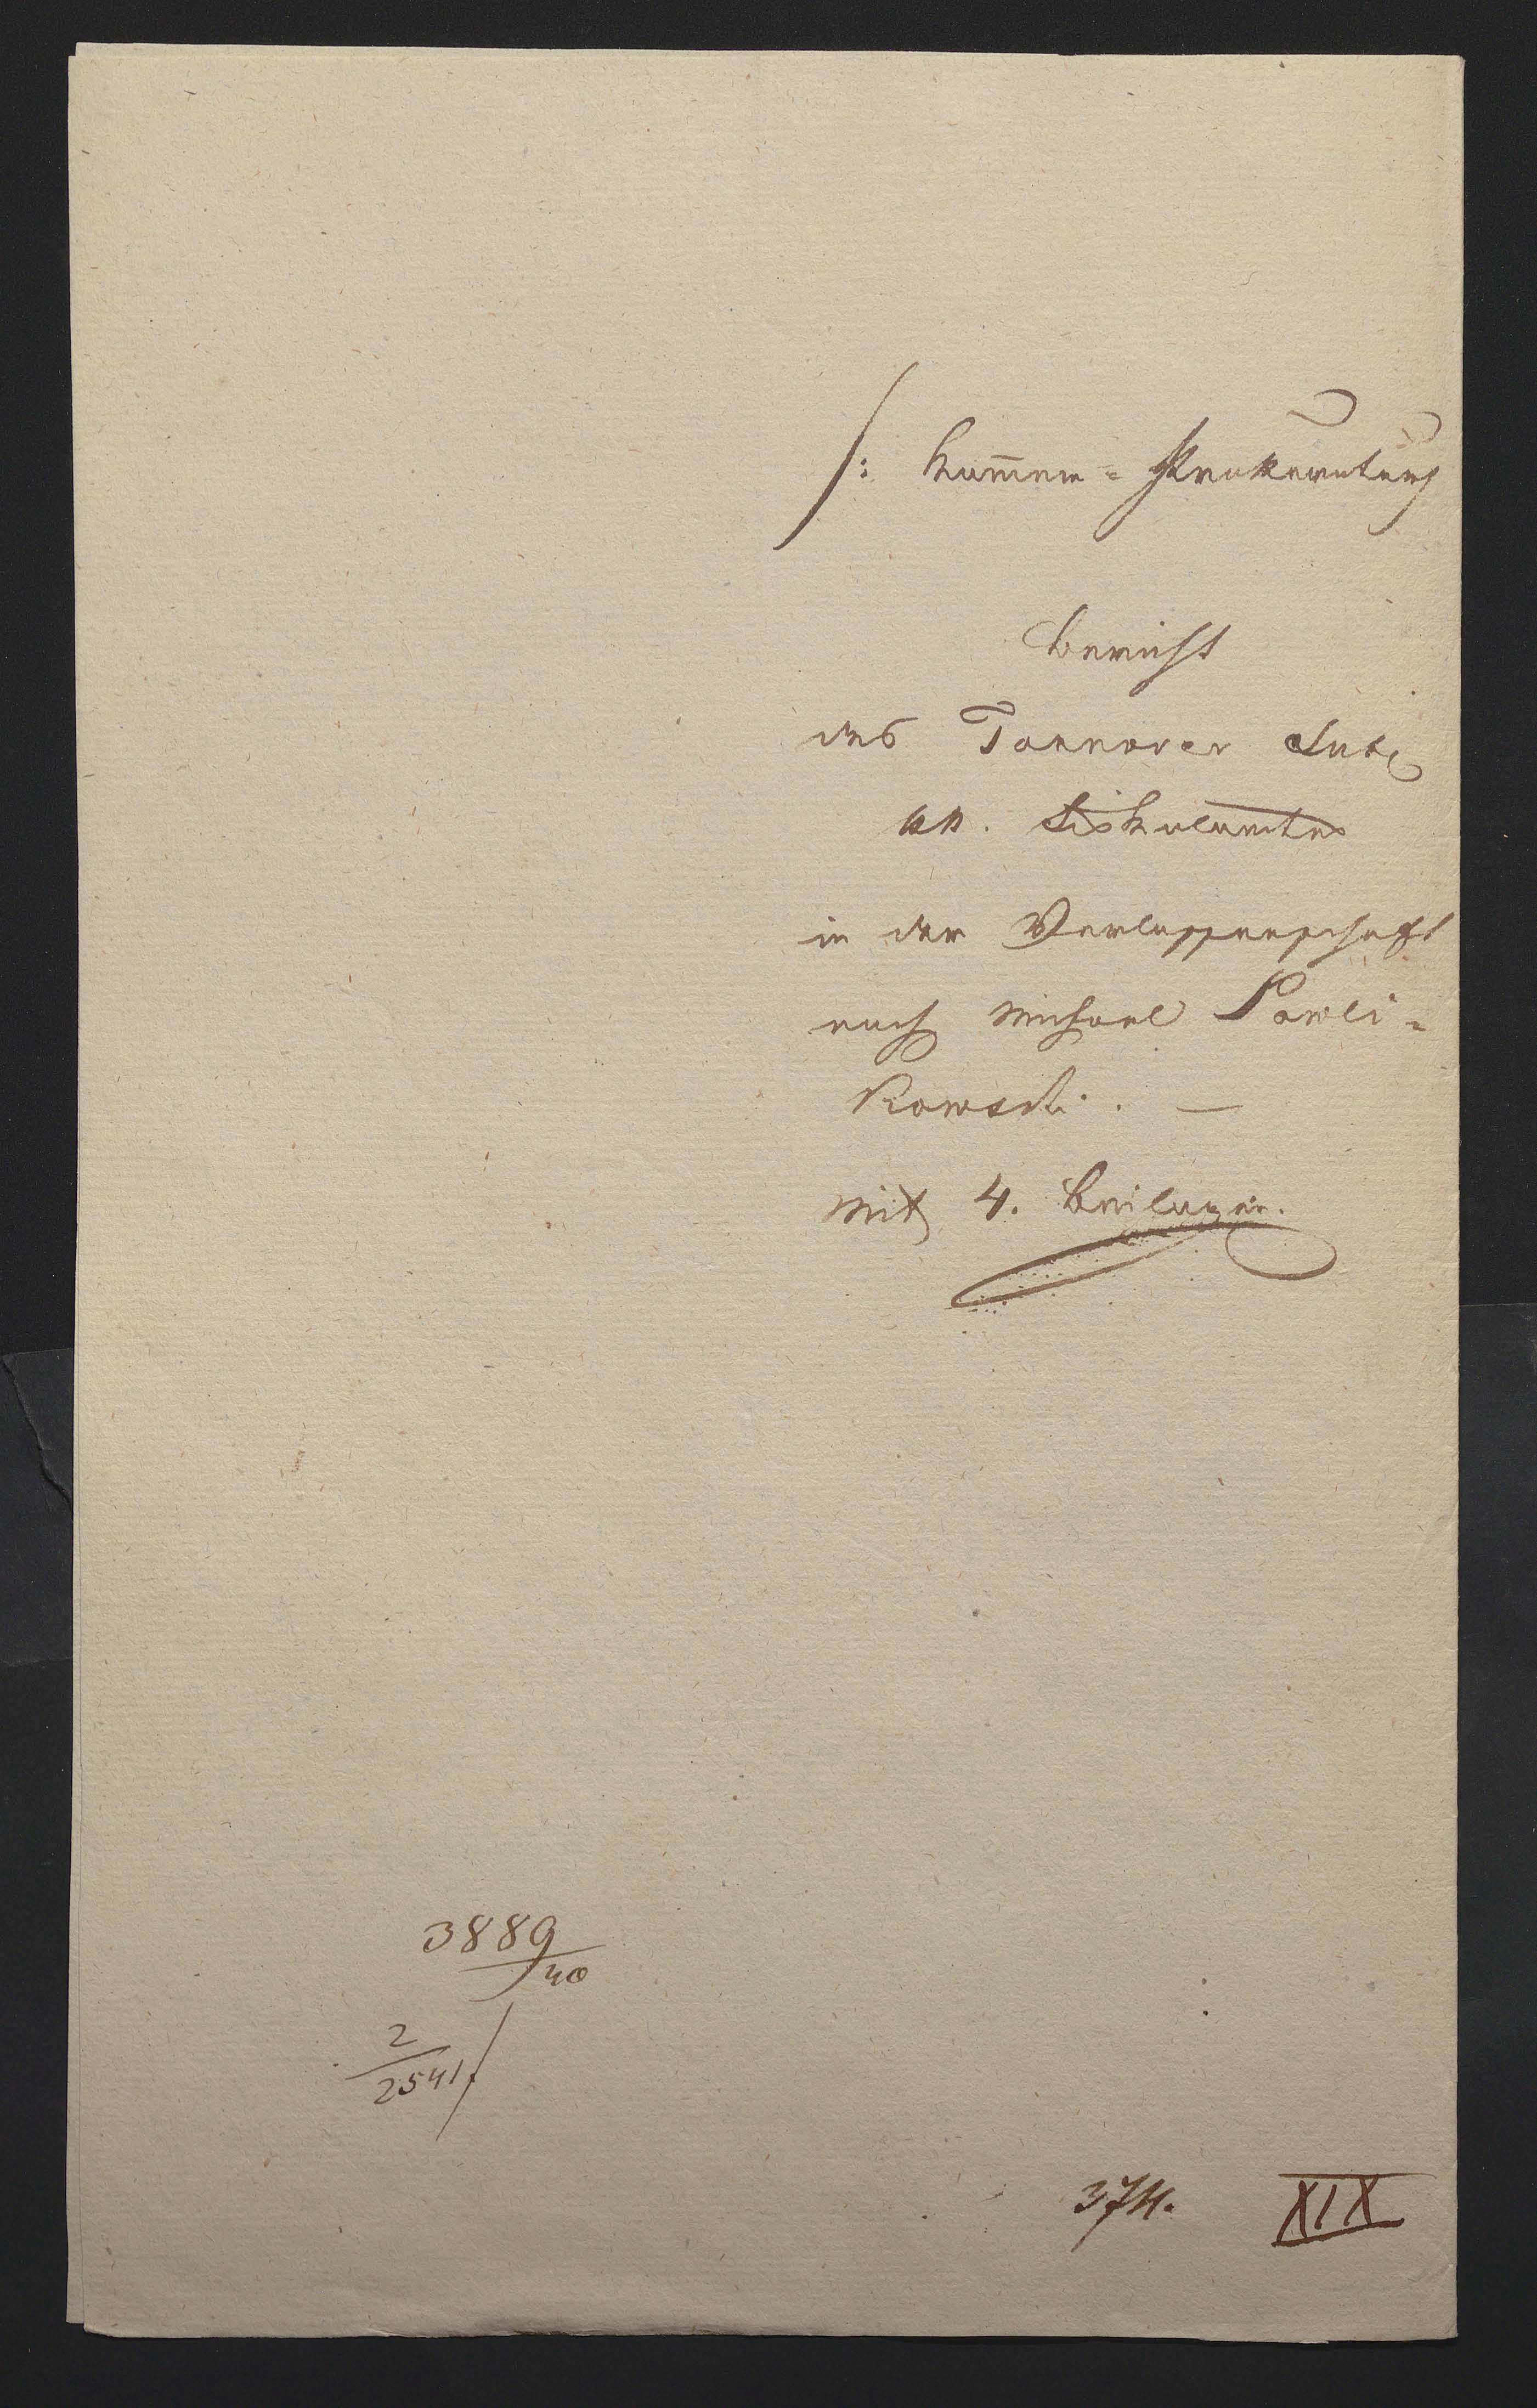 /: Kam̅er-Prokuratur
Bericht
des Tarnover Sub
kk. Fiskalamtes
in der Verlassenschaft
nach Michael Pawli-
kowski. —
Mit 4. Beilagen.
3889/40
2/2541
374. XIX